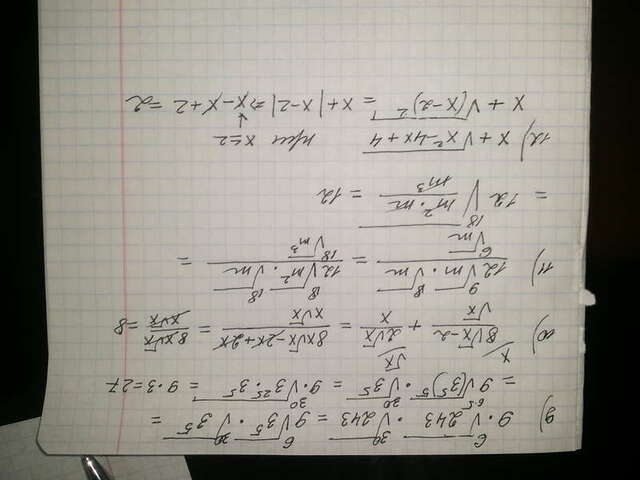 9) 9 · ⁶√243 · ³⁰√243 = 9 ⁶√3⁵ · ³⁰√3⁵ =
= 9 √(3⁵)⁵ · ³⁰√3⁵ = 9 · ³⁰√3²⁵ · 3⁵ = 9 · 3 = 27
10) (8√x - 2)/√x + 2√x/x = (8x√x - 2x + 2x)/(x√x) = 8x√x/(x√x) = 8
11) (12 ⁹√m · ¹⁸√m)/⁶√m = (12 ¹⁸√m² · ¹⁸√m)/¹⁸√m³ =
= 12 ¹⁸√(m² · m)/m³ = 12
12) x + √x² - 4x + 4 при x ≤ 2
x + √(x-2)² = x + |x-2| ⇒ x - x + 2 = 2